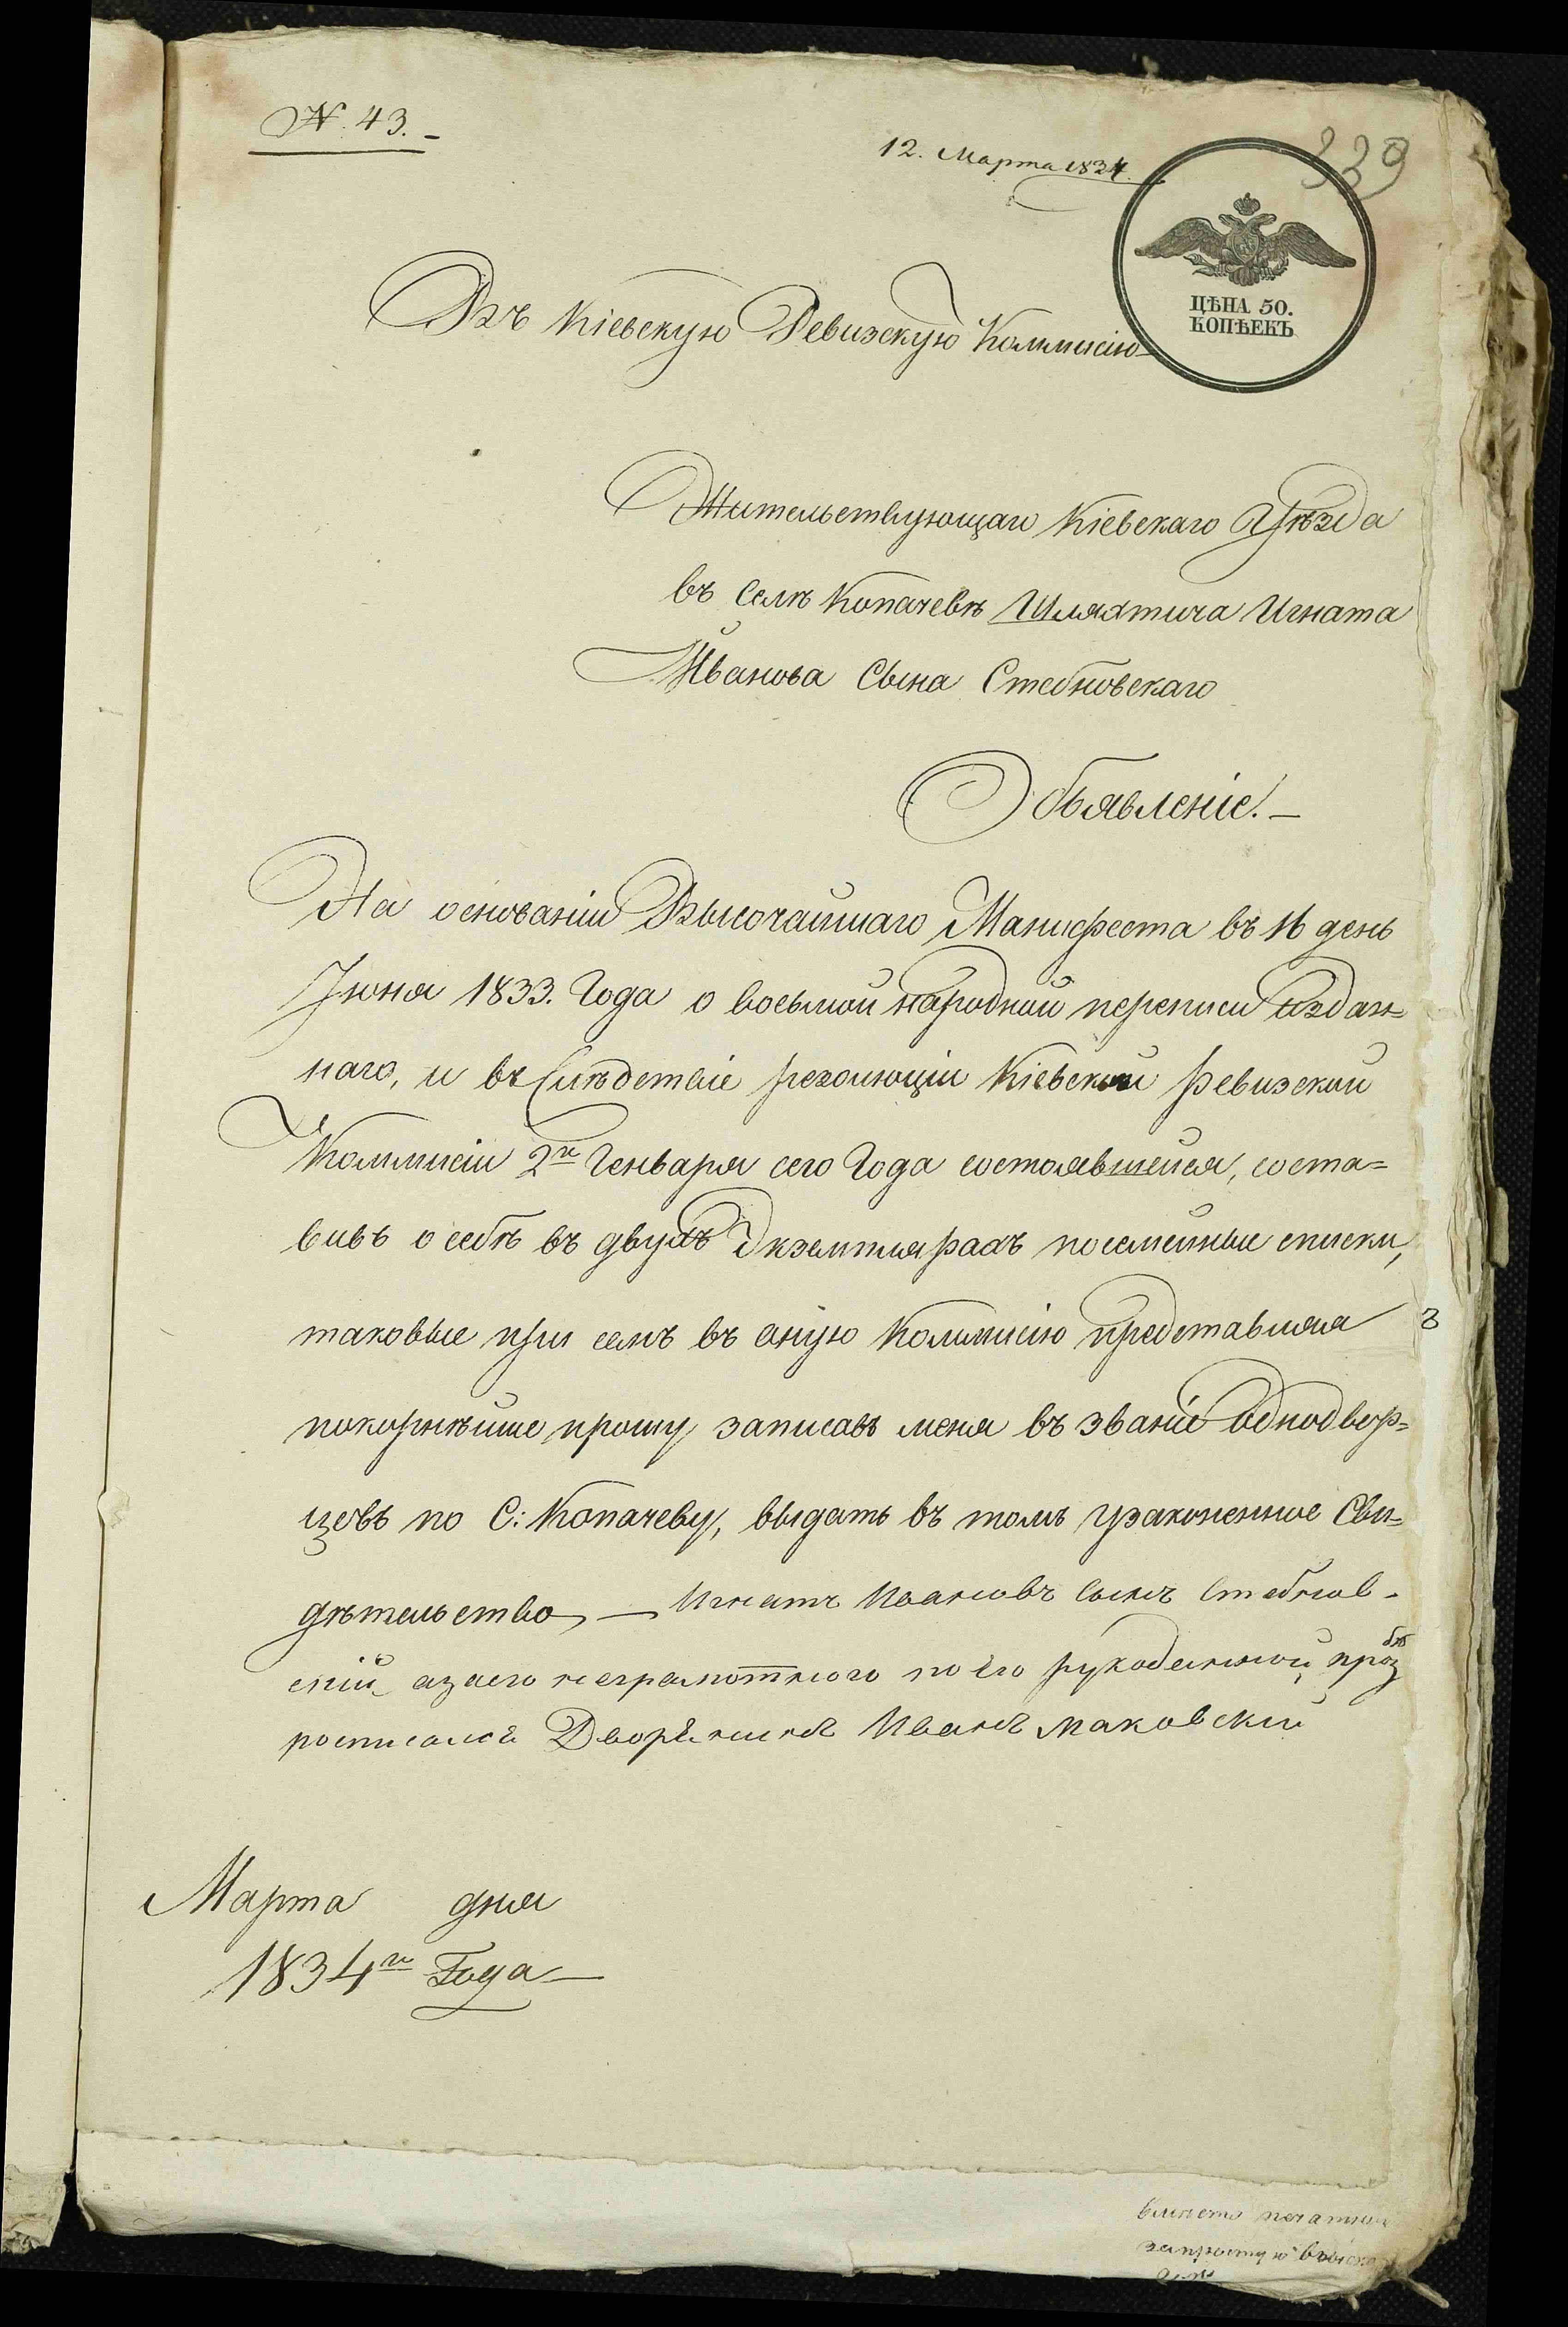 N. 43.
12. Марта 1834.
339
ЦѢНА 50.
КОПѢЕКЪ
Въ Кіевскую Ревизскую Коммисію
Жительствующаго Кіевскаго Уѣзда
въ Селѣ Копачевѣ Шляхтича Игната
Иванова Сына Стебновскаго
Объявленіе.
На основаніи Высочайшаго Манифеста въ 16 день
Іюня 1833. Года о восьмой народной переписи издан=
наго, и въ Слѣдствіе резолюціи Кіевской Ревизской
Коммисіи 2го Генваря сего Года состоявшейся, соста=
вивъ о себѣ въ двухъ Экземплярахъ посемейные списки,
таковые при семъ въ оную Коммисію представляя
покорнѣйше прошу записавъ меня въ званіе однодвор=
цевъ по С: Копачеву, выдать въ томъ узаконенное Сви=
дѣтельство, — Игнатъ Ивановъ Сынъ Стебнов-
скій, азаего неграмотного по Его рукоданной прозбѣ
росписался Дворѣнинъ Иванъ Маковский
Марта дня
1834го Года
вмѣсто